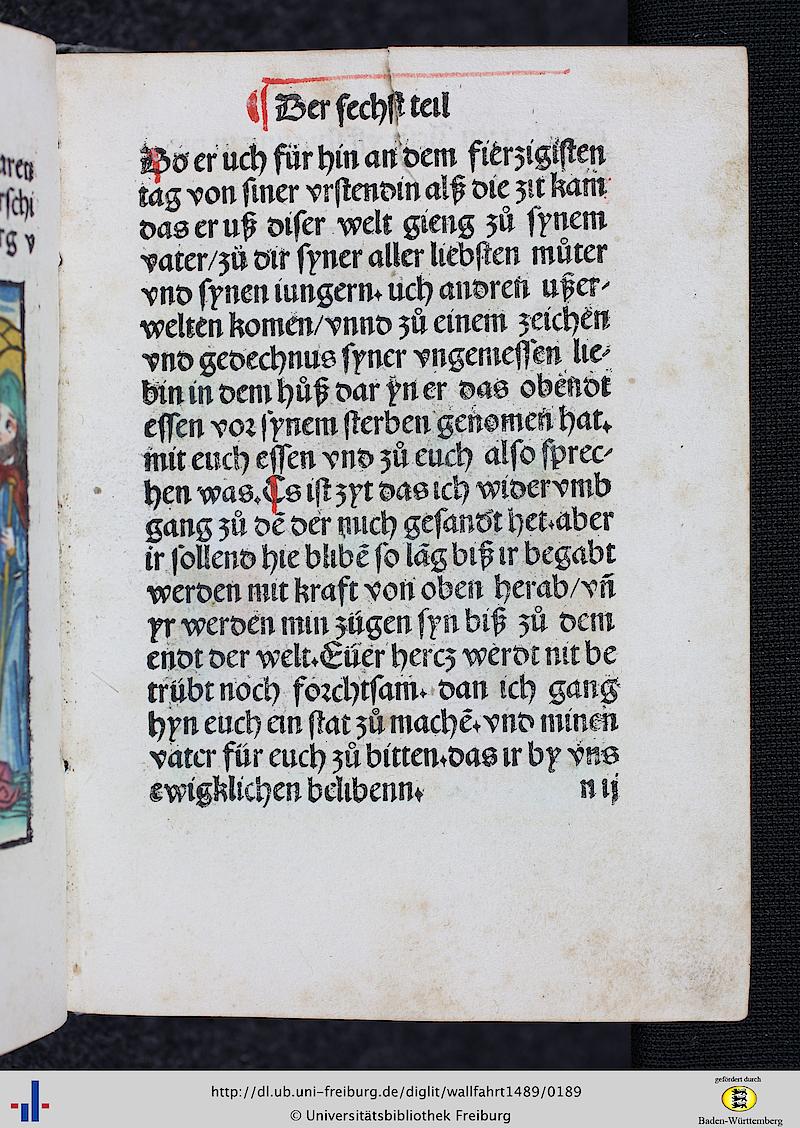 aren
rschi
rg v
Der sechst teil
Do er uch für hin an dem fierzigisten
tag von siner vrstendin alß die zit kam
das er uß diser welt gieng zů synem
vater/zů dir syner aller liebsten můter
vnd synen iungern. uch andren ußer-
welten komen/vnnd zů einem zeichen
vnd gedechnus syner vngemessen lie-
bin in dem hůß dar yn er das obendt
essen vor synem sterben genomen hat.
mit euch essen vnd zů euch also sprec-
hen was. Es ist zyt das ich wider vmb
gang zů dē der mich gesandt het. aber
ir sollend hie blibē so lāg biß ir begabt
werden mit kraft von oben herab/vn̄
yr werden min zügen syn biß zů dem
endt der welt. Eüer hercz werdt nit be
trübt noch forchtsam. dan ich gang
hyn euch ein stat zů machē. vnd minen
vater für euch zů bitten. das ir by vns
ewigklichen belibenn.
n ij
http://dl.ub.uni-freiburg.de/diglit/wallfahrt1489/0189
© Universitätsbibliothek Freiburg
gefördert durch
Baden-Württemberg